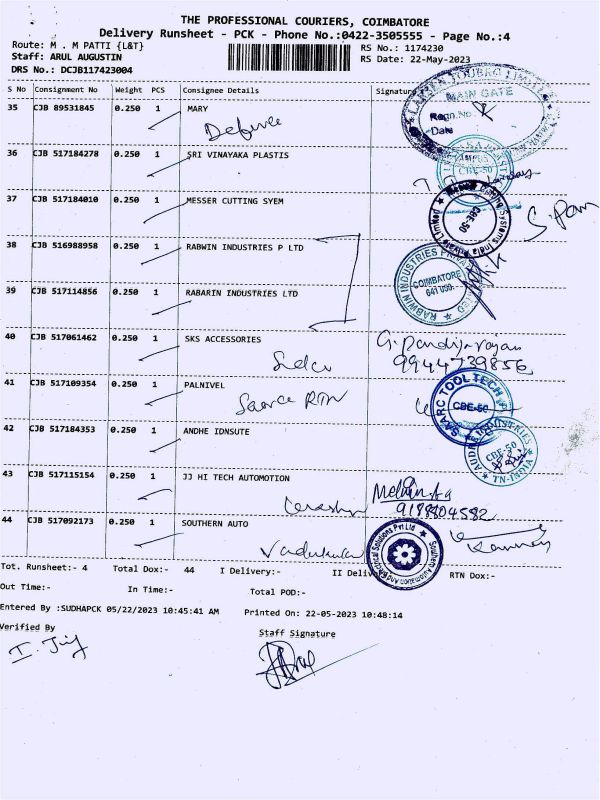 THE PROFESSIONAL COURIERS, COIMBATORE
Delivery Runsheet - PCK - Phone No.:0422-3505555 - Page No.:4
Route: M . M PATTI {L&T} RS No.: 1174230
Staff: ARUL AUGUSTIN RS Date: 22-May-2023
DRS No.: DCJB117423004
S No Consignment No Weight PCS Consignee Details Signature
LARSEN & TOUBRO LIMITED
MAIN GATE
Regn.No.
Date
35 CJB 89531845 0.250 1 MARY
Defence
36 CJB 517184278 0.250 1 SRI VINAYAKA PLASTIS
CBE-50
37 CJB 517184010 0.250 1 MESSER CUTTING SYEM
Messer Cutting Systems India Private Limited
CBE-50
38 CJB 516988958 0.250 1 RABWIN INDUSTRIES P LTD
RABWIN INDUSTRIES PRIVATE LIMITED
COIMBATORE
641 050.
39 CJB 517114856 0.250 1 RABARIN INDUSTRIES LTD
40 CJB 517061462 0.250 1 SKS ACCESSORIES
G. Pandiyarajan
9944739856
Sidco
41 CJB 517109354 0.250 1 PALNIVEL
Saarc RTN
SAARC TOOL TECH
CBE-50
42 CJB 517184353 0.250 1 ANDHE IDNSUTE
CBE-50
43 CJB 517115154 0.250 1 JJ HI TECH AUTOMOTION
9188804582
44 CJB 517092173 0.250 1 SOUTHERN AUTO
Southern Automation And Electrical Solutions Pvt Ltd
Tot. Runsheet:- 4 Total Dox:- 44 I Delivery:- II Deliv RTN Dox:-
Out Time:- In Time:- Total POD:-
Entered By :SUDHAPCK 05/22/2023 10:45:41 AM Printed On: 22-05-2023 10:48:14
Verified By Staff Signature